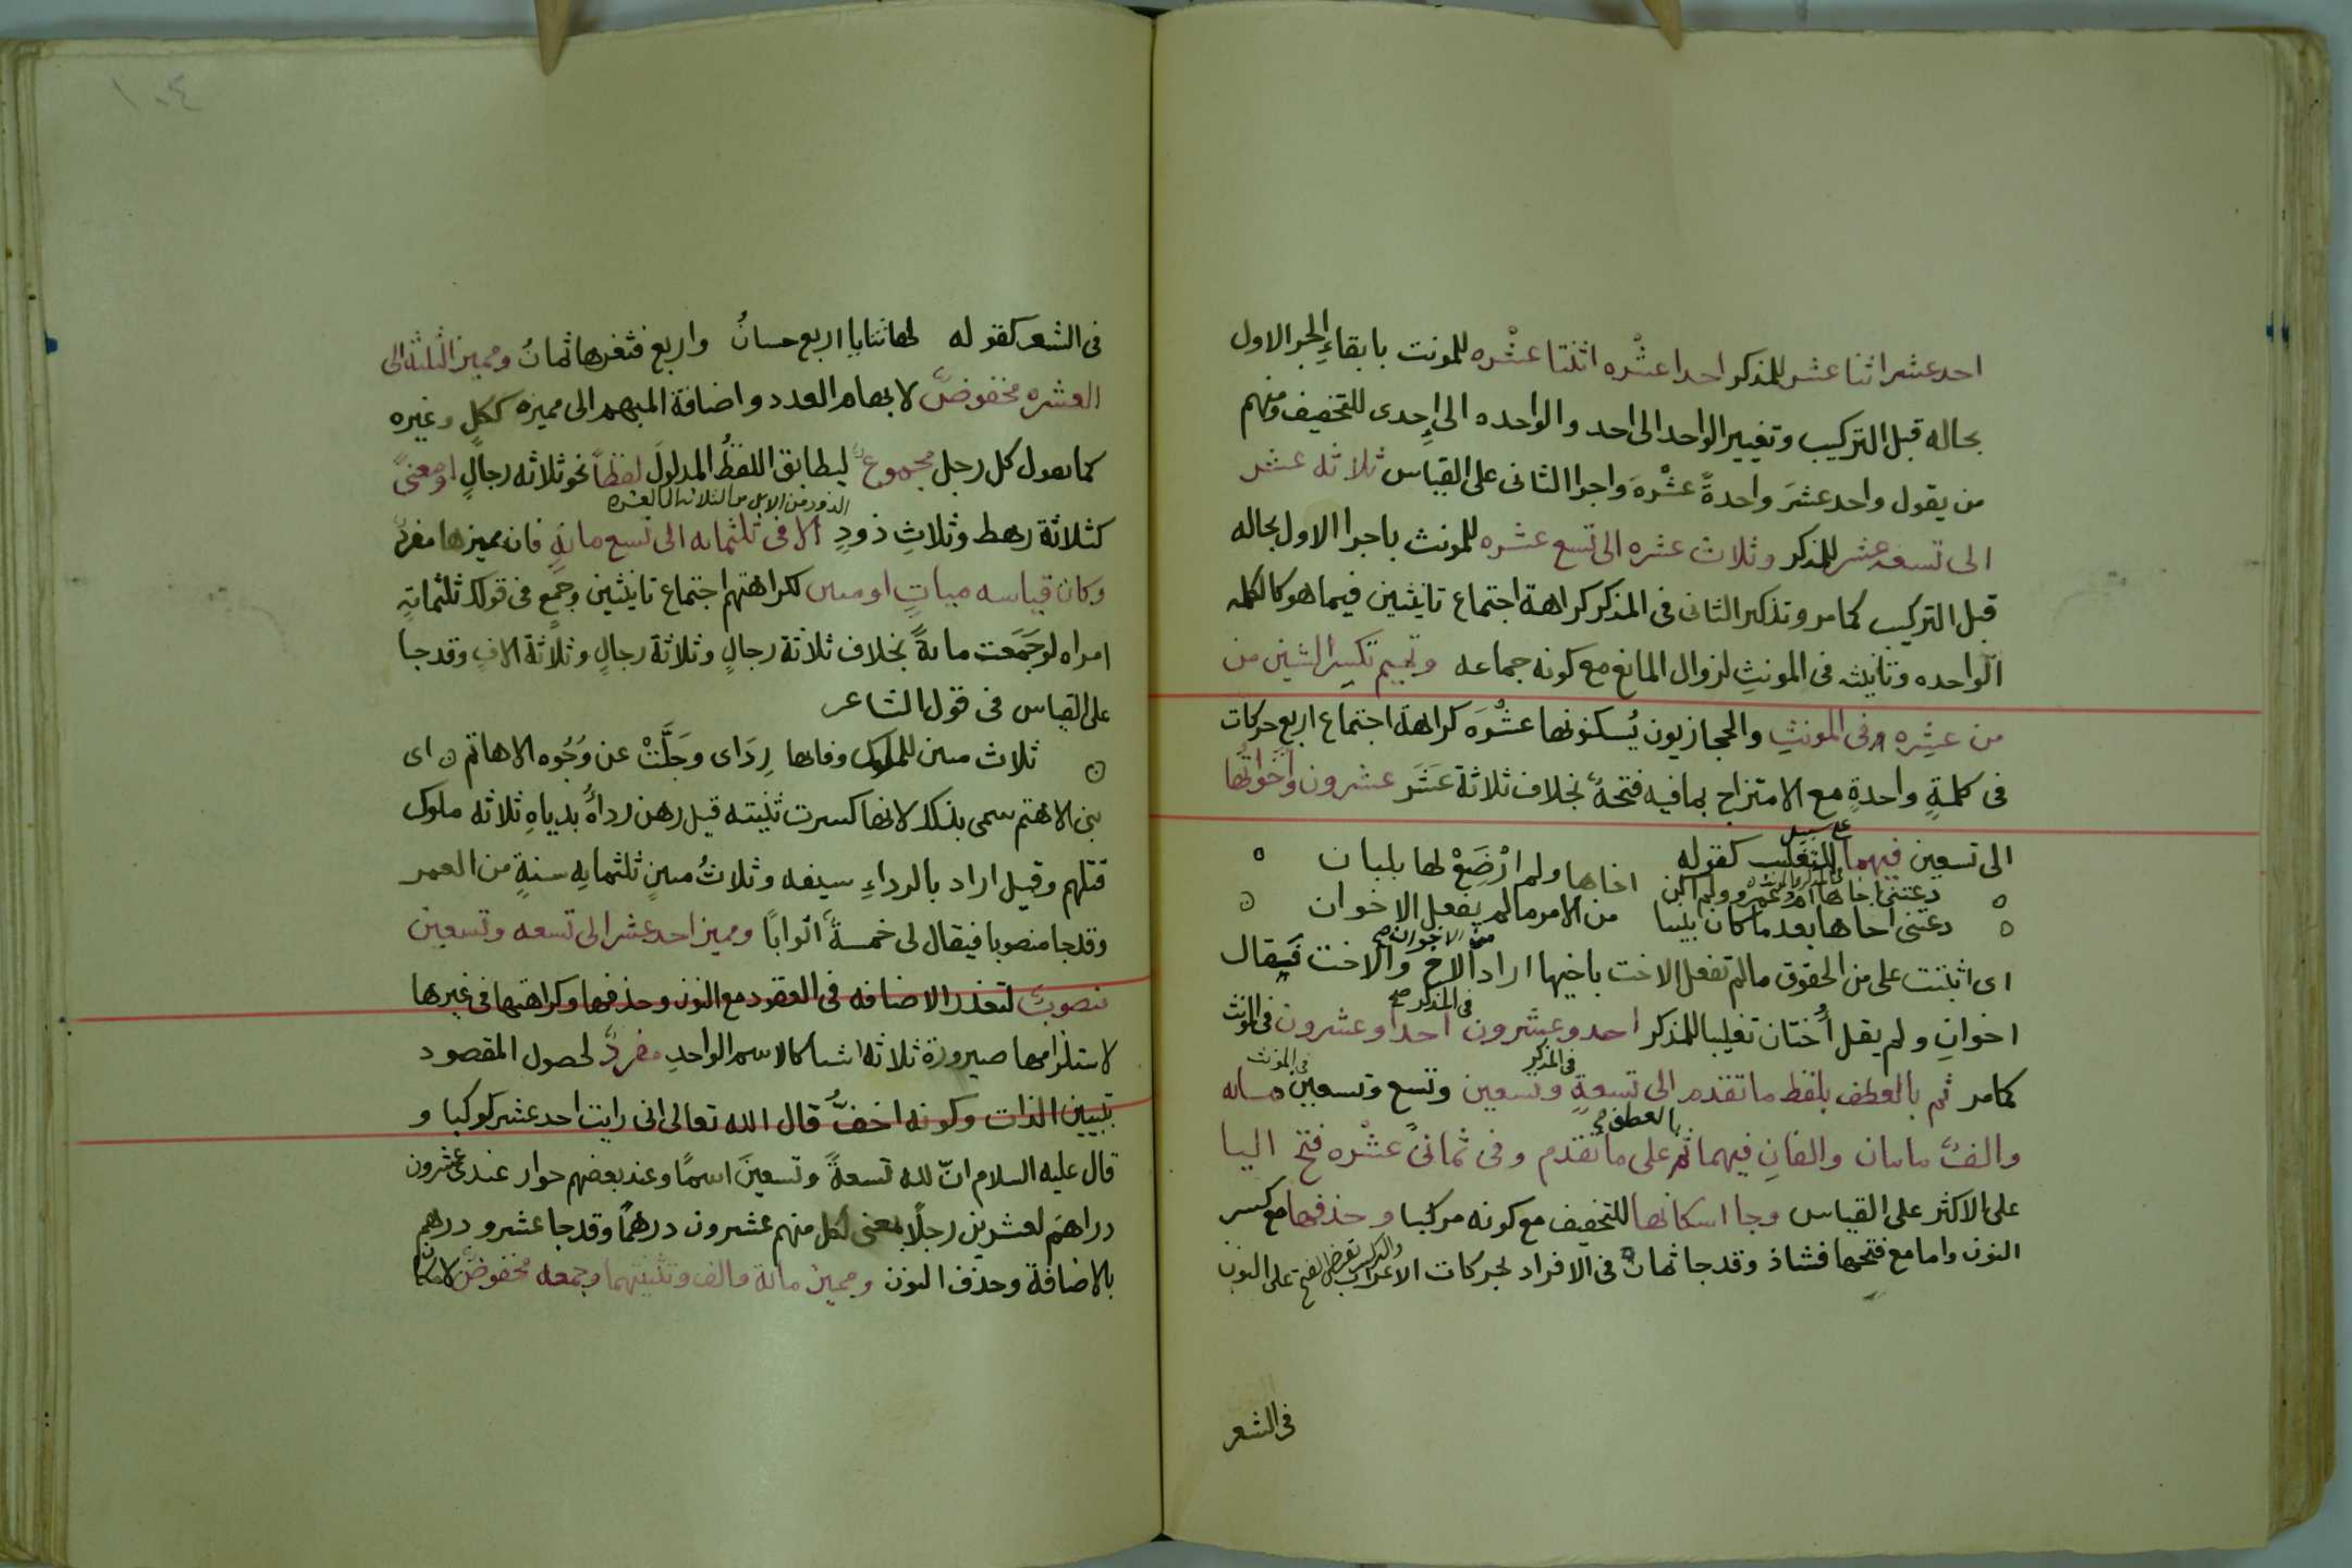 احد عشر اثنا عشر للمذكر احدا عشْره اثنتا عشْره للمونث بابقاءِ الجر الاول
بحاله قبل التركيب وتغيير الواحد الى احد والواحده الى إِحدى للتخفيف ومنهم
من يقول واحد عشرَ واحدةً عشْرهَ واجرا الثانى على القياس ثلاثه عشر
الى تسعه عشر للمذكر وثلاث عشره الى تسع عشره للمونث باجرا الاول بحاله
قبل التركيب كما مر وتذكير الثانى فى المذكر كراهة اجتماع تانيثين فيما هو كالكلمه
الواحده وتانيثه فى المونثِ لزوال المانع مع كونه جماعه وتميم تكسر الشين من
من عشِره فى المونثِ والحجازيون يُسكنونها عشْرَه كراهة اجتماع اربع حركات
فى كلمةٍ واحدةٍ مع الامتزاج بما فيه فتحةٌ بخلاف ثلاثة عَشَر عشرون واَخَواتُها
الى تسعين فيهما على سبيل التغليب كقوله
دعتنى اخاها ام عمرو ولم اكن اخاها ولم ارْضَعْ لها بلبان
دعتنى اخاها بعد ما كان بيننا من الامر ما لم يفعل الاخوان
اى اثبتت على من الحقوق مالم تفعل الاخت باخيها اراد من الاخوان الاخ والاخت فيقال
اخوانِ ولم يقل اُختان تغليبا للمذكر احد وعشرون فى المذكر احدا وعشرون فى المونث
كما مر ثم بالعطف بلفظ ما تقدم الى تسعةٍ وتسعين فى المذكر وتسع وتسعين فى المونث ومايه
والفٌ مايتان والفانِ فيهما ثم بالعطف على ما تقدم وفى ثمانىْ عشْره فتح اليا
على الاكثر على القياس وجا اسكانها للتخفيف مع كونه مركبا وحذفها مع كسر
النون واما مع فتحها فشاذ وقد جا ثمانٌ فى الافراد بحركات الاعراب على النون
فى الشعر
١٠٤
فى الشعر كقوله لها ثنايا اربع حسانُ واربع فثغرها ثمانُ ومميز الثلثه الى
العشره مخفوضٌ لابهام العدد واضافة المبهم الى مميزه ككل وغيره
كما تقول كل رجل مجموعٌ ليطابق اللفظُ المدلولَ لفظاً نحو ثلاثه رجالٍ او معنىً
الذود من الابل من الثلاثه الى العشره
كثلاثة رهط وثلاثِ ذودٍ الا فى ثلثمايه الى تسع مايةٍ فان مميزها مفردٌ
وكان قياسه ميياتٍ او مىين لكراهتهم اجتماع تانيثين وجمعٍ فى قولك ثلثمايةِ
امراه لو جَمَعت مايةً بخلاف ثلاثة رجالٍ وثلاثة رجالٍ وثلاثة الافٍ وقد جا
على القياس فى قول الشاعر
ثلاث مىين للملوك وفابها رِدَاى وجَلَّتْ عن وُجُوه الاهاتم اى
بنى الاهتم سمى بذلك لانها كسرت ثنيته قيل رهن رداهُ بدياهِ ثلاثه ملوك
قتلهم وقيل اراد بالرداءِ سيفه وثلاثُ مىينٍ ثلثمايه سنةٍ من العمر
وقد جا منصوبا فيقال لى خمسةٌ اثوابًا ومميز احد عشر الى تسعه وتسعين
منصوبٌ لتعذر الاضافه فى العقود مع النون وحذفها وكراهتها فى غيرها
لاستلزامها صيرورة ثلاثه اشيا كالاسم الواحدِ مفردٌ لحصول المقصود
بتبيين الذات وكونه اخفُّ قال الله تعالى انى رايت احد عشر كوكبا و
قال عليه السلام انّ لله تسعةً وتسعينَ اسمًا وعند بعضهم جواز عندى عشرون
دراهمَ لعشرين رجلًا بمعنى لكل منهم عشرون درهمًا وقد جا عشرو درهمٍ
بالاضافة وحذف النون ومميز ماية والف وتثنيتهما وجمعه مخفوضٌ لامكان